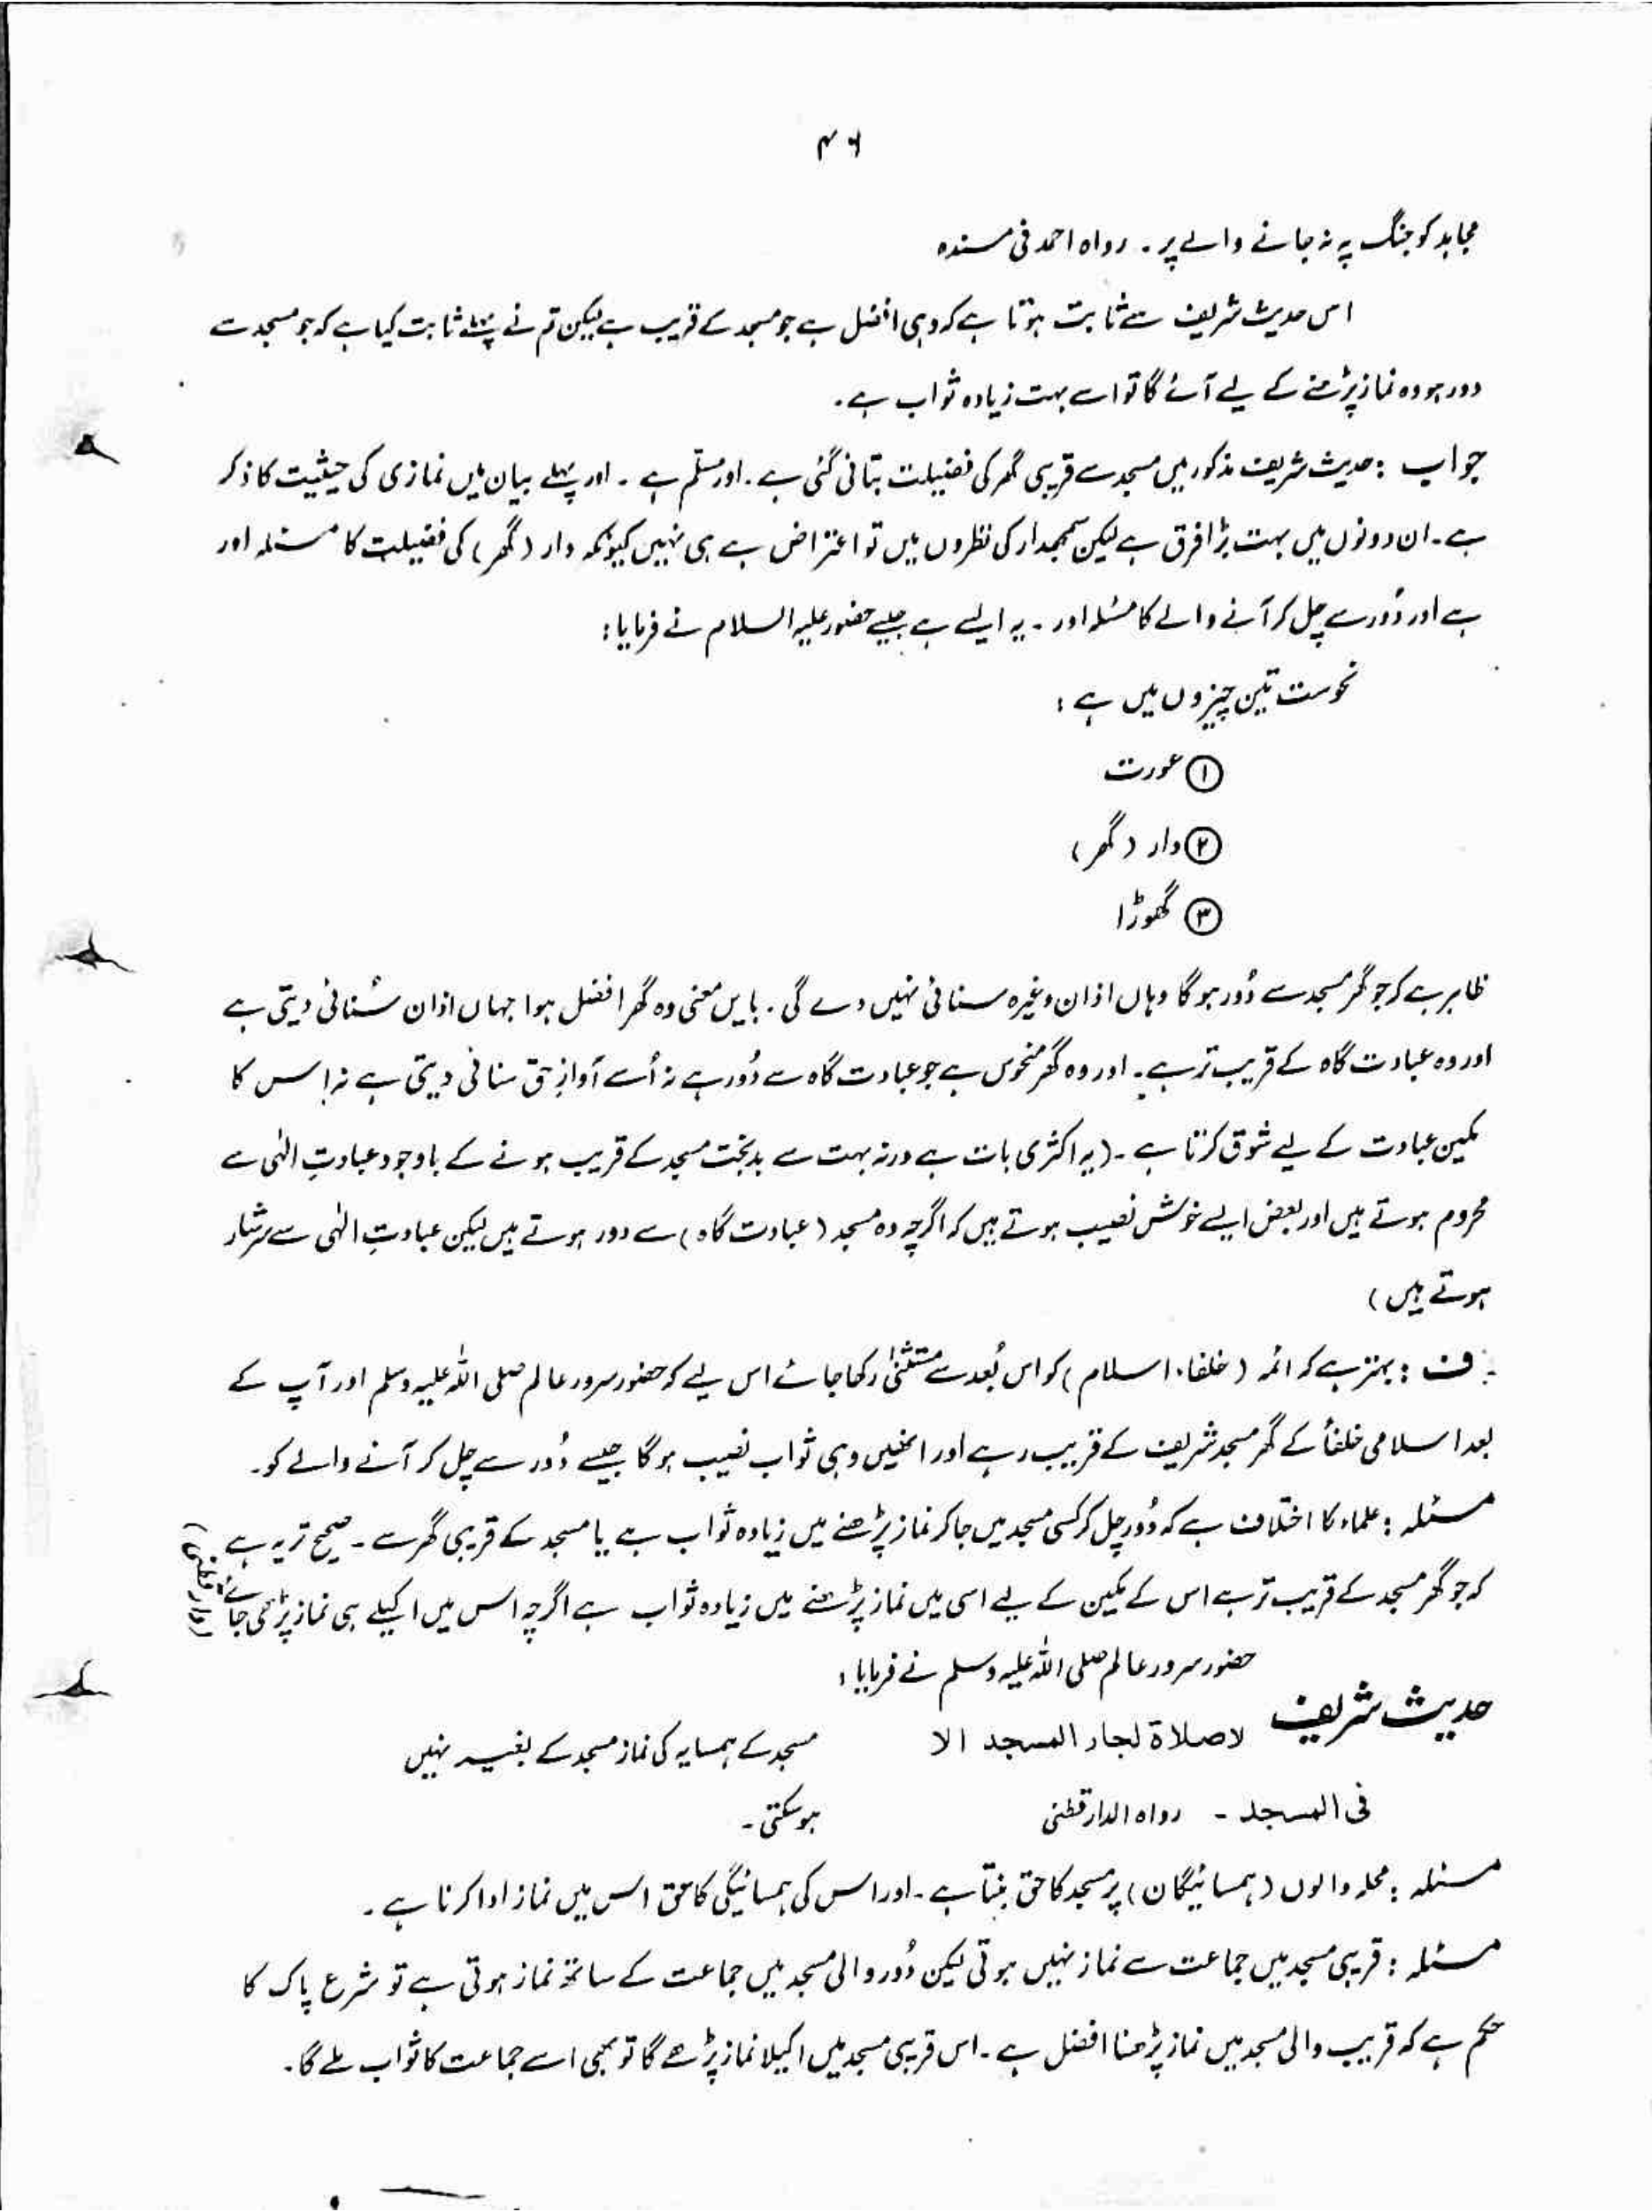 ۴۶
مجاہد کو جنگ پہ نہ جانے والے پر۔ رواہ احمد فی مسندہ
اس حدیث شریف سے ثابت ہوتا ہے کہ وہی افضل ہے جو مسجد کے قریب ہے لیکن تم نے پہلے ثابت کیا ہے کہ جو مسجد سے
دور ہو وہ نماز پڑھنے کے لیے آئے گا تو اسے بہت زیادہ ثواب ہے۔
جواب : حدیث شریف مذکور میں مسجد سے قریبی گھر کی فضیلت بتائی گئی ہے۔ اور مسلّم ہے۔ اور پہلے بیان میں نمازی کی حیثیت کا ذکر
ہے۔ ان دونوں میں بہت بڑا فرق ہے لیکن سمجھدار کی نظروں میں تو اعتراض ہے ہی نہیں کیونکہ دار (گھر) کی فضیلت کا مسئلہ اور
ہے اور دُور سے چل کر آنے والے کا مسئلہ اور۔ یہ ایسے ہے جیسے حضور علیہ السلام نے فرمایا :
نحوست تین چیزوں میں ہے :
① عورت
② دار (گھر)
③ گھوڑا
ظاہر ہے کہ جو گھر مسجد سے دُور ہو گا وہاں اذان وغیرہ سنائی نہیں دے گی۔ بایں معنی وہ گھر افضل ہوا جہاں اذان سُنائی دیتی ہے
اور وہ عبادت گاہ کے قریب تر ہے۔ اور وہ گھر منحوس ہے جو عبادت گاہ سے دُور ہے نہ اُسے آوازِ حق سنائی دیتی ہے نہ اس کا
مکین عبادت کے لیے شوق کرتا ہے۔ (یہ اکثری بات ہے ورنہ بہت سے بدبخت مسجد کے قریب ہونے کے باوجود عبادتِ الٰہی سے
محروم ہوتے ہیں اور بعض ایسے خوش نصیب ہوتے ہیں کہ اگرچہ وہ مسجد (عبادت گاہ) سے دور ہوتے ہیں لیکن عبادتِ الٰہی سے سرشار
ہوتے ہیں)
ف : بہتر ہے کہ ائمہ (خلفاء اسلام) کو اس بُعد سے مستثنیٰ رکھا جائے اس لیے کہ حضور سرور عالم صلی اللہ علیہ وسلم اور آپ کے
بعد اسلامی خلفأ کے گھر مسجد شریف کے قریب رہے اور انھیں وہی ثواب نصیب ہو گا جیسے دُور سے چل کر آنے والے کو۔
مسئلہ : علماء کا اختلاف ہے کہ دُور چل کر کسی مسجد میں جا کر نماز پڑھنے میں زیادہ ثواب ہے یا مسجد کے قریبی گھر سے۔ صحیح تر یہ ہے
کہ جو گھر مسجد کے قریب تر ہے اس کے مکین کے لیے اسی میں نماز پڑھنے میں زیادہ ثواب ہے اگرچہ اس میں اکیلے ہی نماز پڑھی جائے (دارقطنی)
حضور سرور عالم صلی اللہ علیہ وسلم نے فرمایا :
حدیث شریف لاصلاۃ لجار المسجد الا
مسجد کے ہمسایہ کی نماز مسجد کے بغیر نہیں
فی المسجد ۔ رواہ الدارقطنی
ہوسکتی۔
مسئلہ : محلہ والوں (ہمسائیگان) پر مسجد کا حق بنتا ہے۔ اور اس کی ہمسائیگی کا حق اس میں نماز ادا کرنا ہے۔
مسئلہ : قریبی مسجد میں جماعت سے نماز نہیں ہوتی لیکن دُور والی مسجد میں جماعت کے ساتھ نماز ہوتی ہے تو شرع پاک کا
حکم ہے کہ قریب والی مسجد میں نماز پڑھنا افضل ہے۔ اس قریبی مسجد میں اکیلا نماز پڑھے گا تو بھی اسے جماعت کا ثواب ملے گا۔